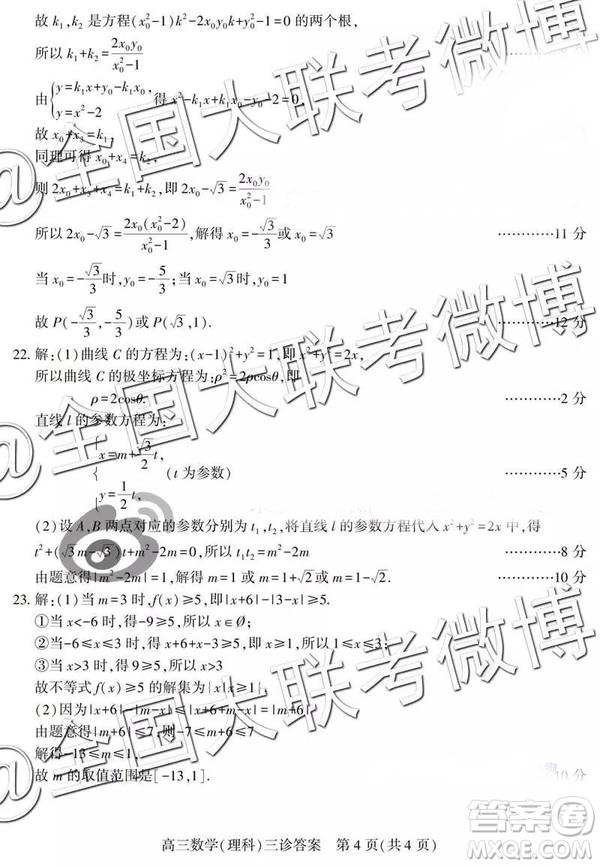 故 k₁,k₂ 是方程(x₀²-1)k²-2x₀y₀k+y₀²-1=0 的两个根,
所以 k₁+k₂=2x₀y₀/(x₀²-1) …………
由{y=k₁x+y₀-k₁x₀, y=x²-2 得 x²-k₁x+k₁x₀-y₀-2=0,
故 x₀+x₃=k₁,
同理可得 x₀+x₄=k₂,
则 2x₀+x₃+x₄=k₁+k₂,即 2x₀-√3=2x₀y₀/(x₀²-1)
所以 2x₀-√3=2x₀(x₀²-2)/(x₀²-1),解得 x₀=-√3/3或 x₀=√3 …………11 分
当 x₀=-√3/3时,y₀=-5/3;当 x₀=√3时,y₀=1
故 P(-√3/3,-5/3)或 P(√3,1). …………12 分
22. 解:(1)曲线 C 的方程为:(x-1)²+y²=1,即 x²+y²=2x,
所以曲线 C 的极坐标方程为:ρ²=2ρcosθ,即
ρ=2cosθ. …………2 分
直线 l 的参数方程为:
{x=m+√3/2 t, y=1/2 t, (t 为参数) …………5 分
(2)设 A,B 两点对应的参数分别为 t₁,t₂,将直线 l 的参数方程代入 x²+y²=2x 中,得
t²+(√3m-√3)t+m²-2m=0,所以 t₁t₂=m²-2m …………8 分
由题意得|m²-2m|=1,解得 m=1 或 m=1+√2或 m=1-√2. …………10 分
23. 解:(1)当 m=3 时,f(x)≥5,即|x+6|-|x-3|≥5.
①当 x<-6 时,得-9≥5,所以 x∈∅;
②当-6≤x≤3 时,得 x+6+x-3≥5,所以 1≤x≤3
③当 x>3 时,得 9≥5,所以 x>3
故不等式 f(x)≥5 的解集为{x|x≥1}
(2)因为|x+6|-|m-x|≤|x+6+m-x|=|m+6|,
由题意得|m+6|≤7,则-7≤m+6≤7
解得-13≤m≤1,
故 m 的取值范围是[-13,1]. 10 分
高三数学(理科)三诊答案 第 4 页(共 4 页)
@全国大联考微博
@全国大联考微博
答案圈
MXQE.COM